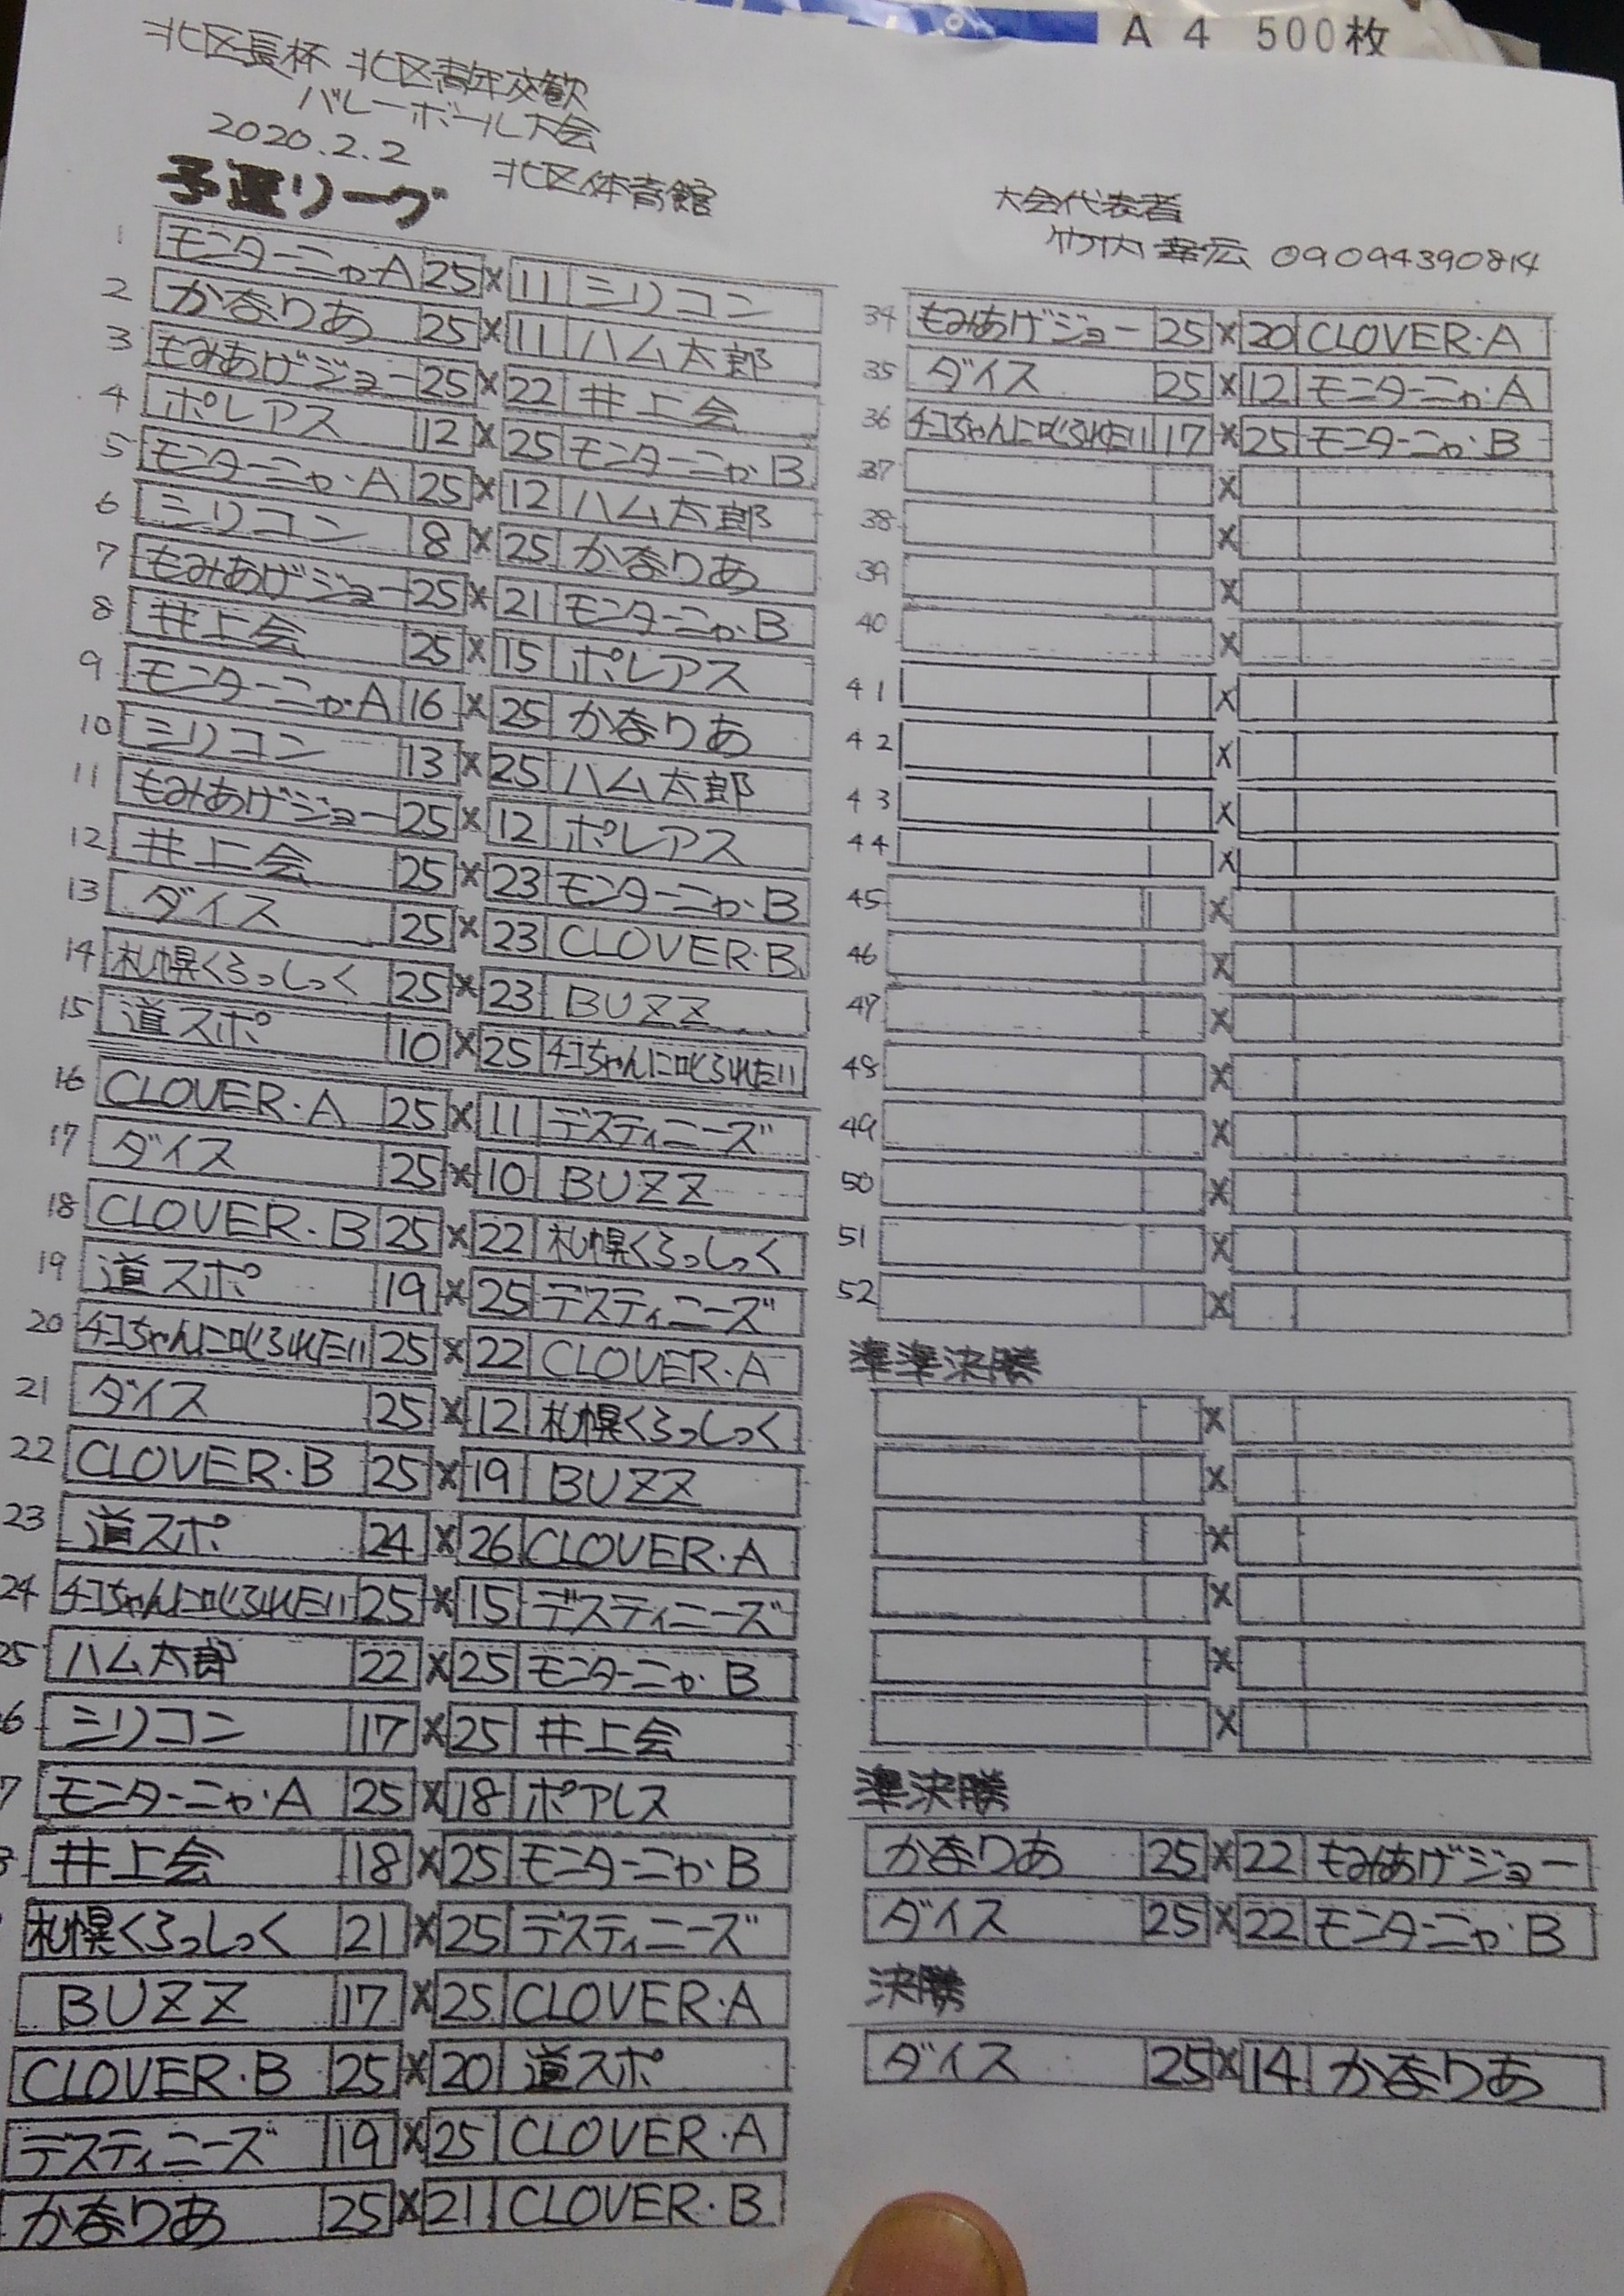 A4 500枚
北区長杯 北区青年交歓
バレーボール大会
2020.2.2
北区体育館
予選リーグ
大会代表者
竹内 幸宏 09094390814
1 モンターニャ・A 25 × 11 シリコン
2 かなりあ 25 × 11 ハム太郎
3 もみあげジョー 25 × 22 井上会
4 ポレアス 12 × 25 モンターニャ・B
5 モンターニャ・A 25 × 12 ハム太郎
6 シリコン 8 × 25 かなりあ
7 もみあげジョー 25 × 21 モンターニャ・B
8 井上会 25 × 15 ポレアス
9 モンターニャ・A 16 × 25 かなりあ
10 シリコン 13 × 25 ハム太郎
11 もみあげジョー 25 × 12 ポレアス
12 井上会 25 × 23 モンターニャ・B
13 ダイス 25 × 23 CLOVER・B
14 札幌くらっしっく 25 × 23 BUZZ
15 道スポ 10 × 25 チコちゃんに叱られたい
16 CLOVER・A 25 × 11 デスティニーズ
17 ダイス 25 × 10 BUZZ
18 CLOVER・B 25 × 22 札幌くらっしっく
19 道スポ 19 × 25 デスティニーズ
20 チコちゃんに叱られたい 25 × 22 CLOVER・A
21 ダイス 25 × 12 札幌くらっしっく
22 CLOVER・B 25 × 19 BUZZ
23 道スポ 24 × 26 CLOVER・A
24 チコちゃんに叱られたい 25 × 15 デスティニーズ
25 ハム太郎 22 × 25 モンターニャ・B
6 シリコン 17 × 25 井上会
7 モンターニャ・A 25 × 18 ポアレス
井上会 18 × 25 モンターニャ・B
札幌くらっしっく 21 × 25 デスティニーズ
BUZZ 17 × 25 CLOVER・A
CLOVER・B 25 × 20 道スポ
デスティニーズ 19 × 25 CLOVER・A
かなりあ 25 × 21 CLOVER・B
34 もみあげジョー 25 × 20 CLOVER・A
35 ダイス 25 × 12 モンターニャ・A
36 チコちゃんに叱られたい 17 × 25 モンターニャ・B
37 ×
38 ×
39 ×
40 ×
41 ×
42 ×
43 ×
44 ×
45 ×
46 ×
47 ×
48 ×
49 ×
50 ×
51 ×
52 ×
準準決勝
×
×
×
×
×
×
準決勝
かなりあ 25 × 22 もみあげジョー
ダイス 25 × 22 モンターニャ・B
決勝
ダイス 25 × 14 かなりあ